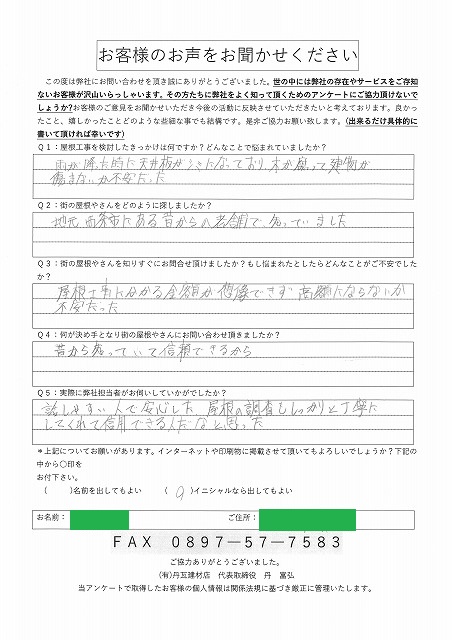 お客様のお声をお聞かせください
この度は弊社にお問い合わせを頂き誠にありがとうございました。世の中には弊社の存在やサービスをご存知
ないお客様が沢山いらっしゃいます。その方たちに弊社をよく知って頂くためのアンケートにご協力頂けないで
しょうか?お客様のご意見をお聞かせいただき今後の活動に反映させていただきたいと考えております。良かっ
たこと、嬉しかったことどのような些細な事でも結構です。是非ご協力お願い致します。(出来るだけ具体的に
書いて頂ければ幸いです)
Q1:屋根工事を検討したきっかけは何ですか?どんなことで悩まれていましたか?
雨が降った時に天井板がシミになっており、木が腐って建物が
傷まないか不安だった
Q2:街の屋根やさんをどのように探しましたか?
地元 西条市にある昔からの老舗で、知っていました
Q3:街の屋根やさんを知りすぐにお問合せ頂けましたか?もし悩まれたとしたらどんなことがご不安でした
か?
屋根工事にかかる金額が想像できず高額にならないか
不安だった
Q4:何が決め手となり街の屋根やさんにお問い合わせ頂きましたか?
昔から有っていて信頼できるから
Q5:実際に弊社担当者がお伺いしていかがでしたか?
話しやすい人で安心した、屋根の調査もしっかりと丁寧に
してくれて信用できる人だなと思った
*上記についてお願いがあります。インターネットや印刷物に掲載させて頂いてもよろしいでしょうか?下記の
中から〇印を
お付下さい。
( )名前を出してもよい (○)イニシャルなら出してもよい
お名前: ご住所:
FAX 0897-57-7583
ご協力ありがとうございました。
(有)丹瓦建材店 代表取締役 丹 富弘
当アンケートで取得したお客様の個人情報は関係法規に基づき厳正に管理いたします。